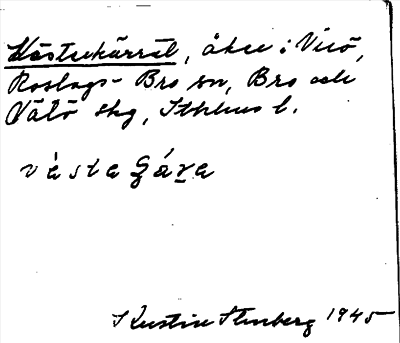 Västerkärret, åker i Vicö,
Roslags-Bro sn, Bro och
Vätö skg, Sthlms l.
västa
Kerstin Stenberg 1945